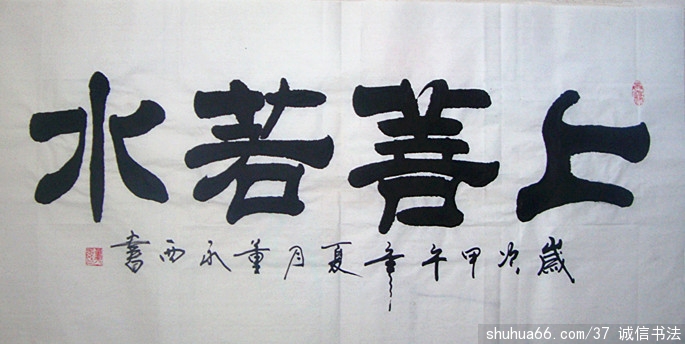 上善若水
歲次甲午年夏月董永西書
shuhua66.com/37 诚信书法